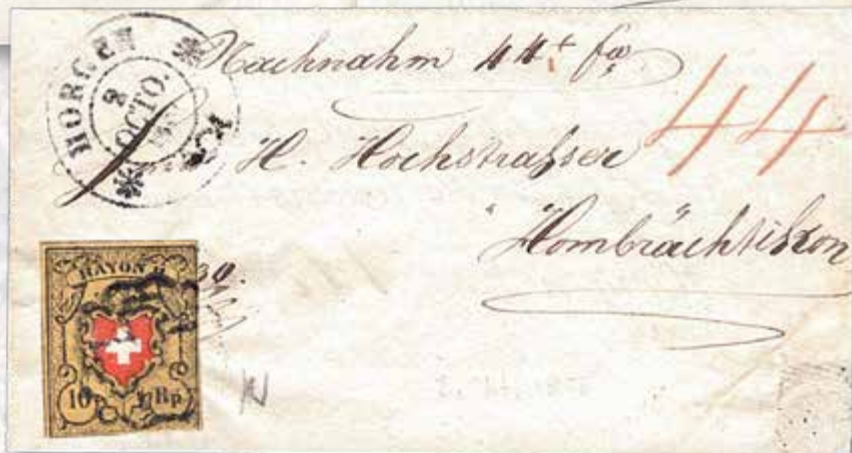 HORGEN
2 OCTO.
Nachnahm 44
44
H. Hochstrasser
Hombrächtikon
RAYON II
10 Rp